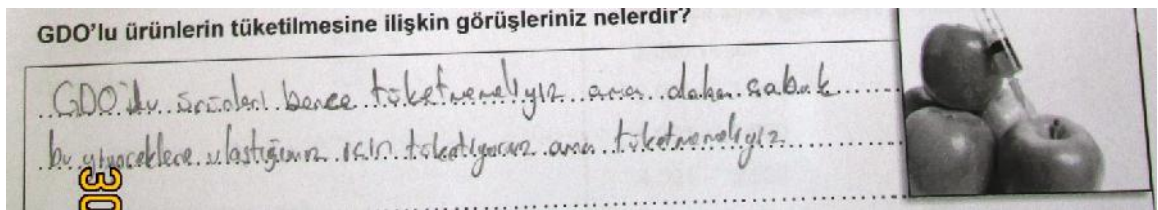 GDO'lu ürünlerin tüketilmesine ilişkin görüşleriniz nelerdir?
GDO'lu ürünleri bence tüketmemeliyiz ama daha çabuk
bu yiyeceklere ulaştığımız için tüketiyoruz ama tüketmemeliyiz
30